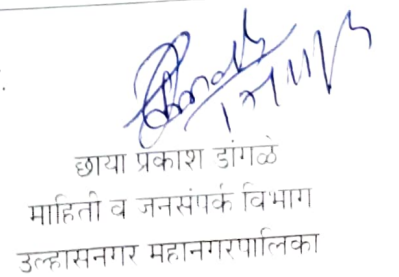 छाया प्रकाश डांगळे
माहिती व जनसंपर्क विभाग
उल्हासनगर महानगरपालिका